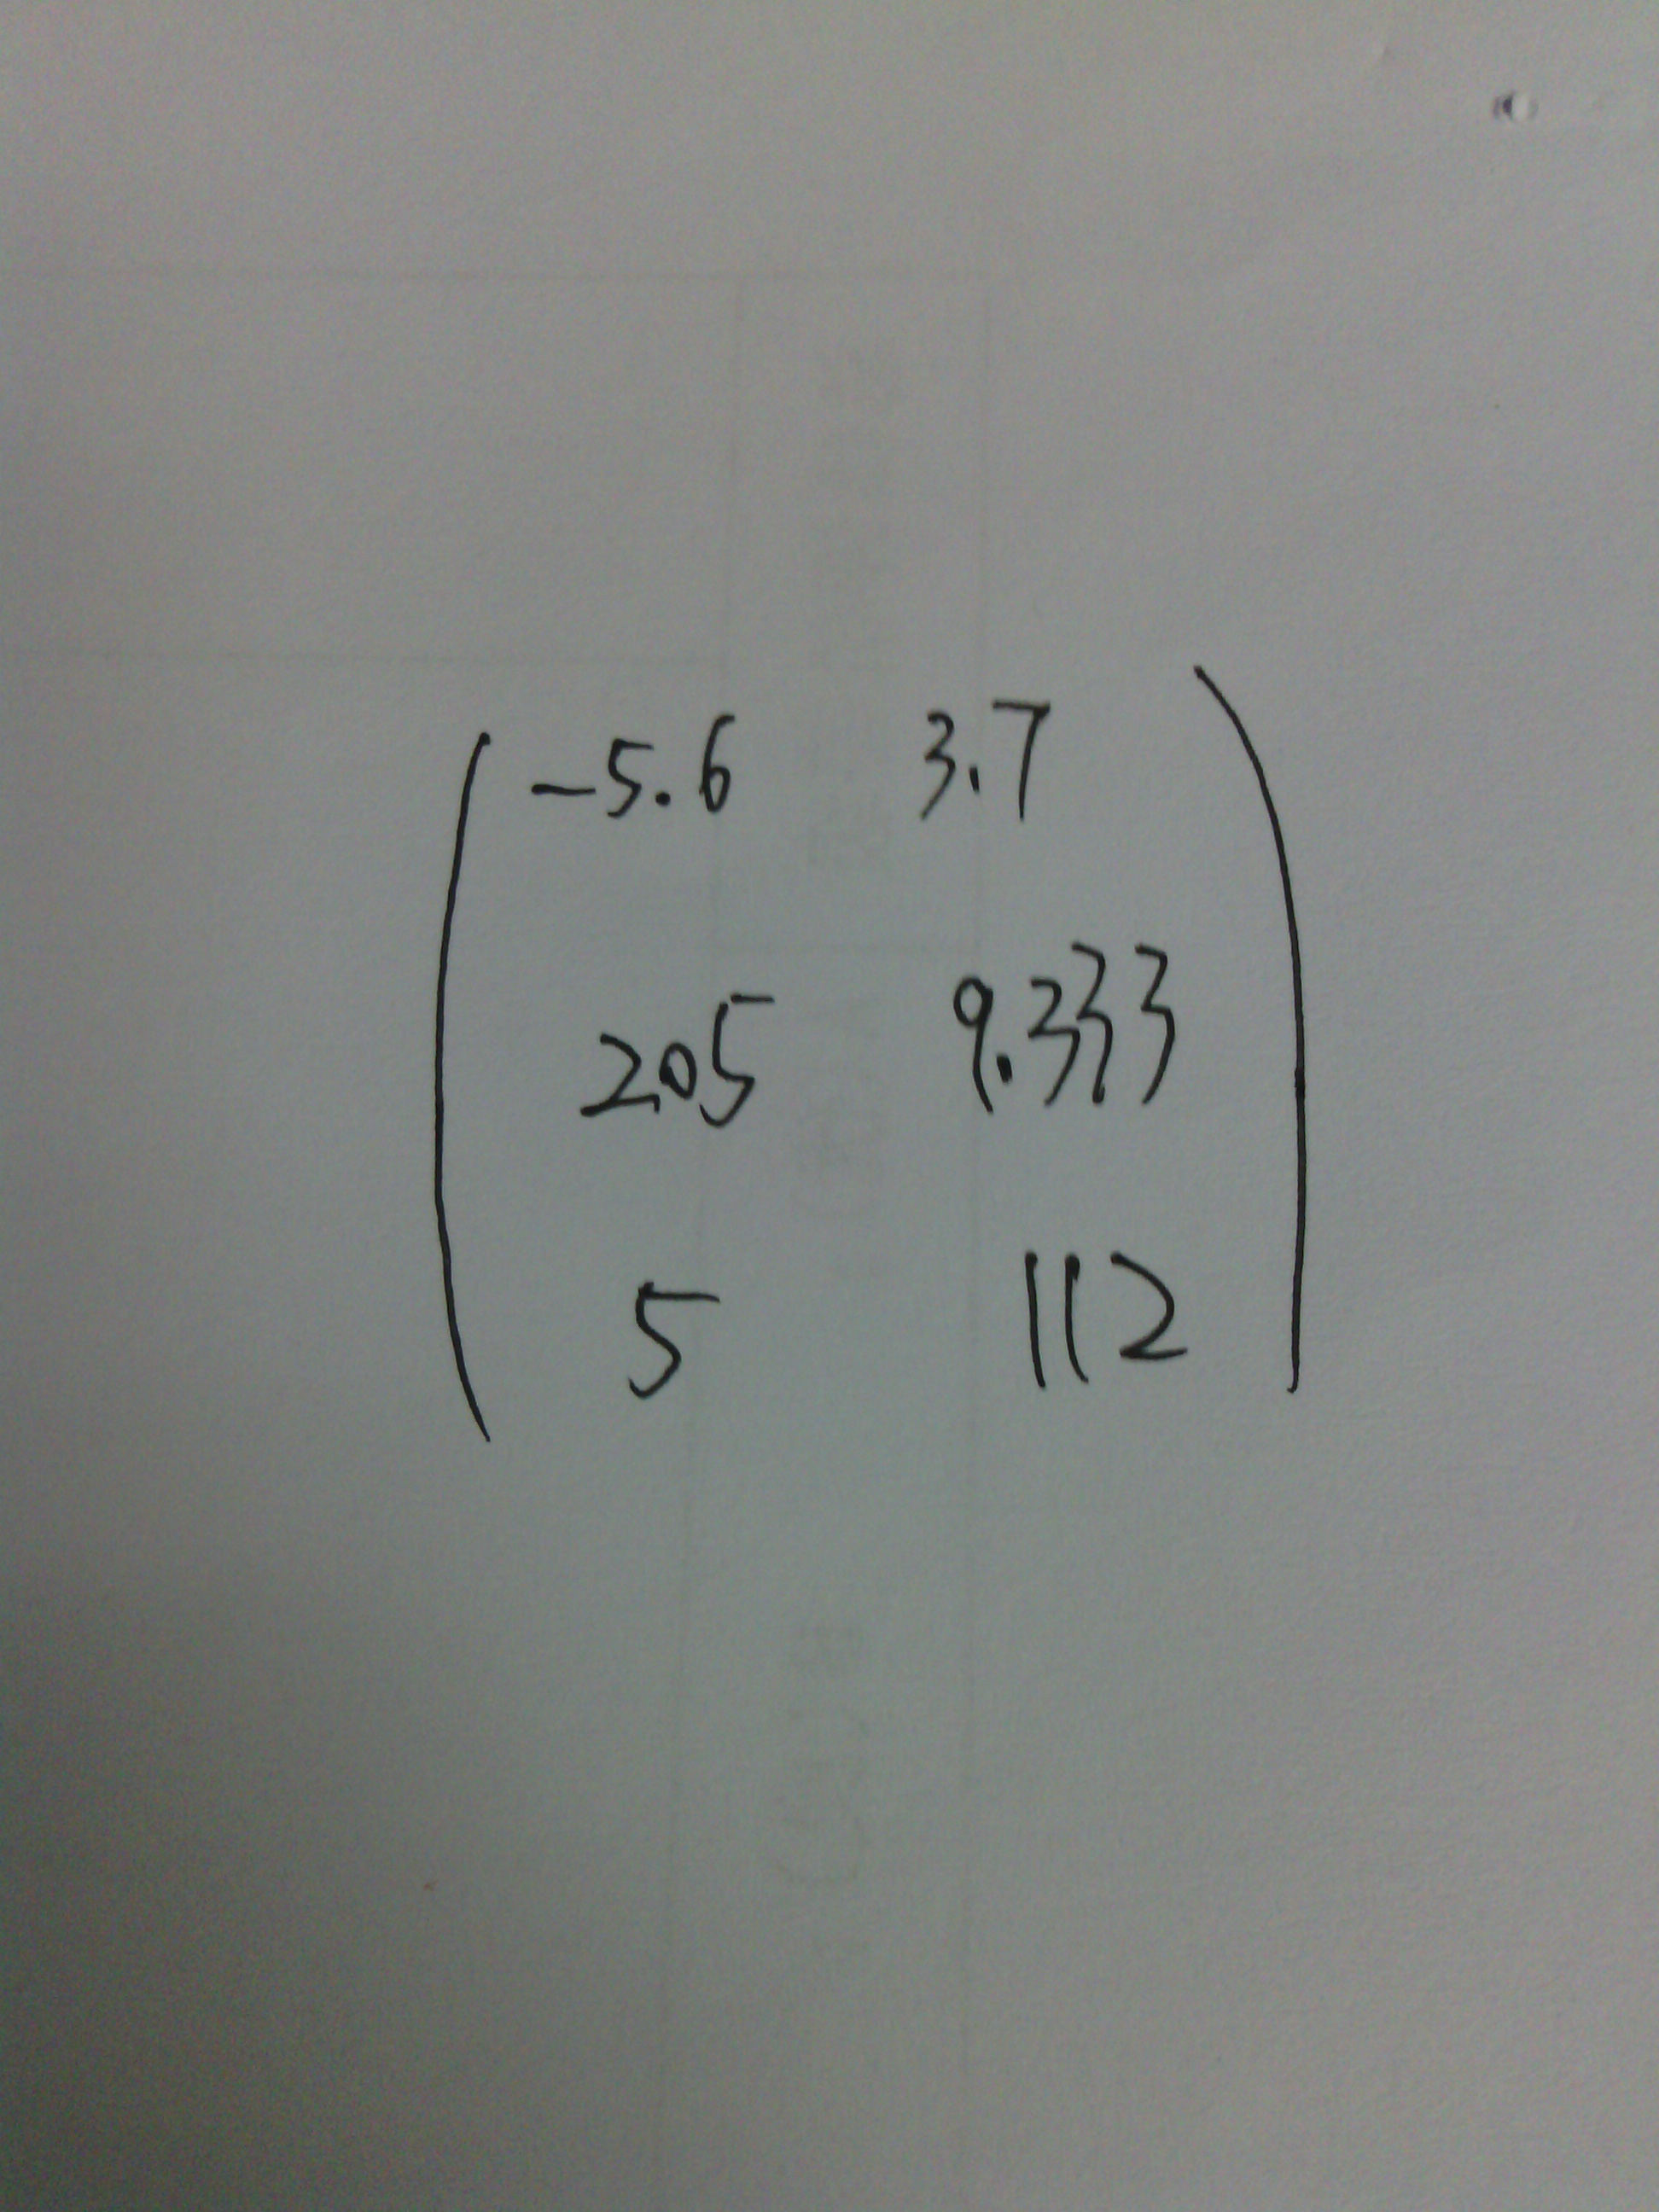 -5.6 3.7
2.05 9.333
5 112